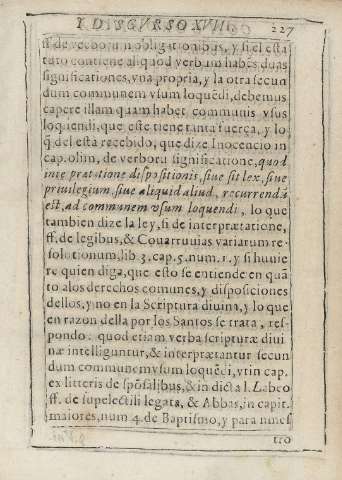 DISCVRSO XVII. 227
ff. de verborum obligationibus, y si el esta
tuto contiene aliquod verbum habēs duas
significationes, vna propria, y la otra secun
dum communem vsum loquēdi, debemus
capere illam quam habet communis vsus
loquendi, que este tiene tanta fuerça, y lo
q̄ del està recebido, que dize Inocencio in
cap. olim, de verborū significatione, quod
inte pratatione dispositionis, siue sit lex, siue
priuilegium, siue aliquid aliud, recurrendū
est, ad communem vsum loquendi, lo que
tambien dize la ley, si de interprætatione,
ff. de legibus, & Couarruuias variarum re-
solutionum, lib. 3. cap. 5. num. 1. y si huuie
re quien diga, que esto se entiende en quā
to alos derechos comunes, y disposiciones
dellos, y no en la Scriptura diuina, y lo que
en razon della por los Santos se trata, res-
pondo: quod etiam verba scripturæ diui
næ intelliguntur, & interprætantur secun
dum communem vsum loquēdi, vt in cap.
ex litteris de spōsalibus, & in dicta l. Labeo
ff. de supelectili legata, & Abbas, in capit.
maiores, num 4. de Baptismo, y para nues
tro